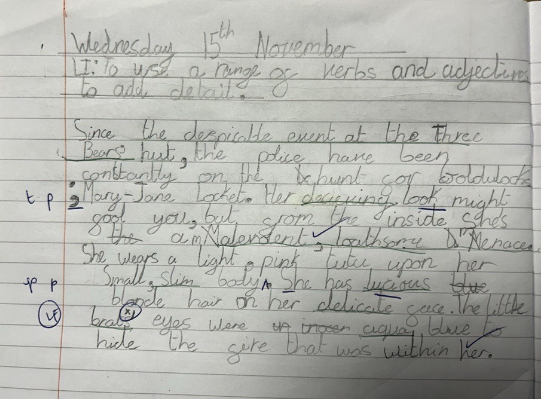 Wednesday 15th November
LI: To use a range of verbs and adjectives
to add detail.
Since the despicable event at the three
Bears hut, the police have been
constantly on the hunt for Goldulocks
t p ; Mary-Jane Locket. Her decieving look might
fool you, but from the inside shes
the a malevolent, loathsome menace.
She wears a light, pink tutu upon her
sp p Small, slim body^ She has lucious blue
blonde hair on her delicate face. The little
brats eyes were aqua blue to
hide the fire that was within her.